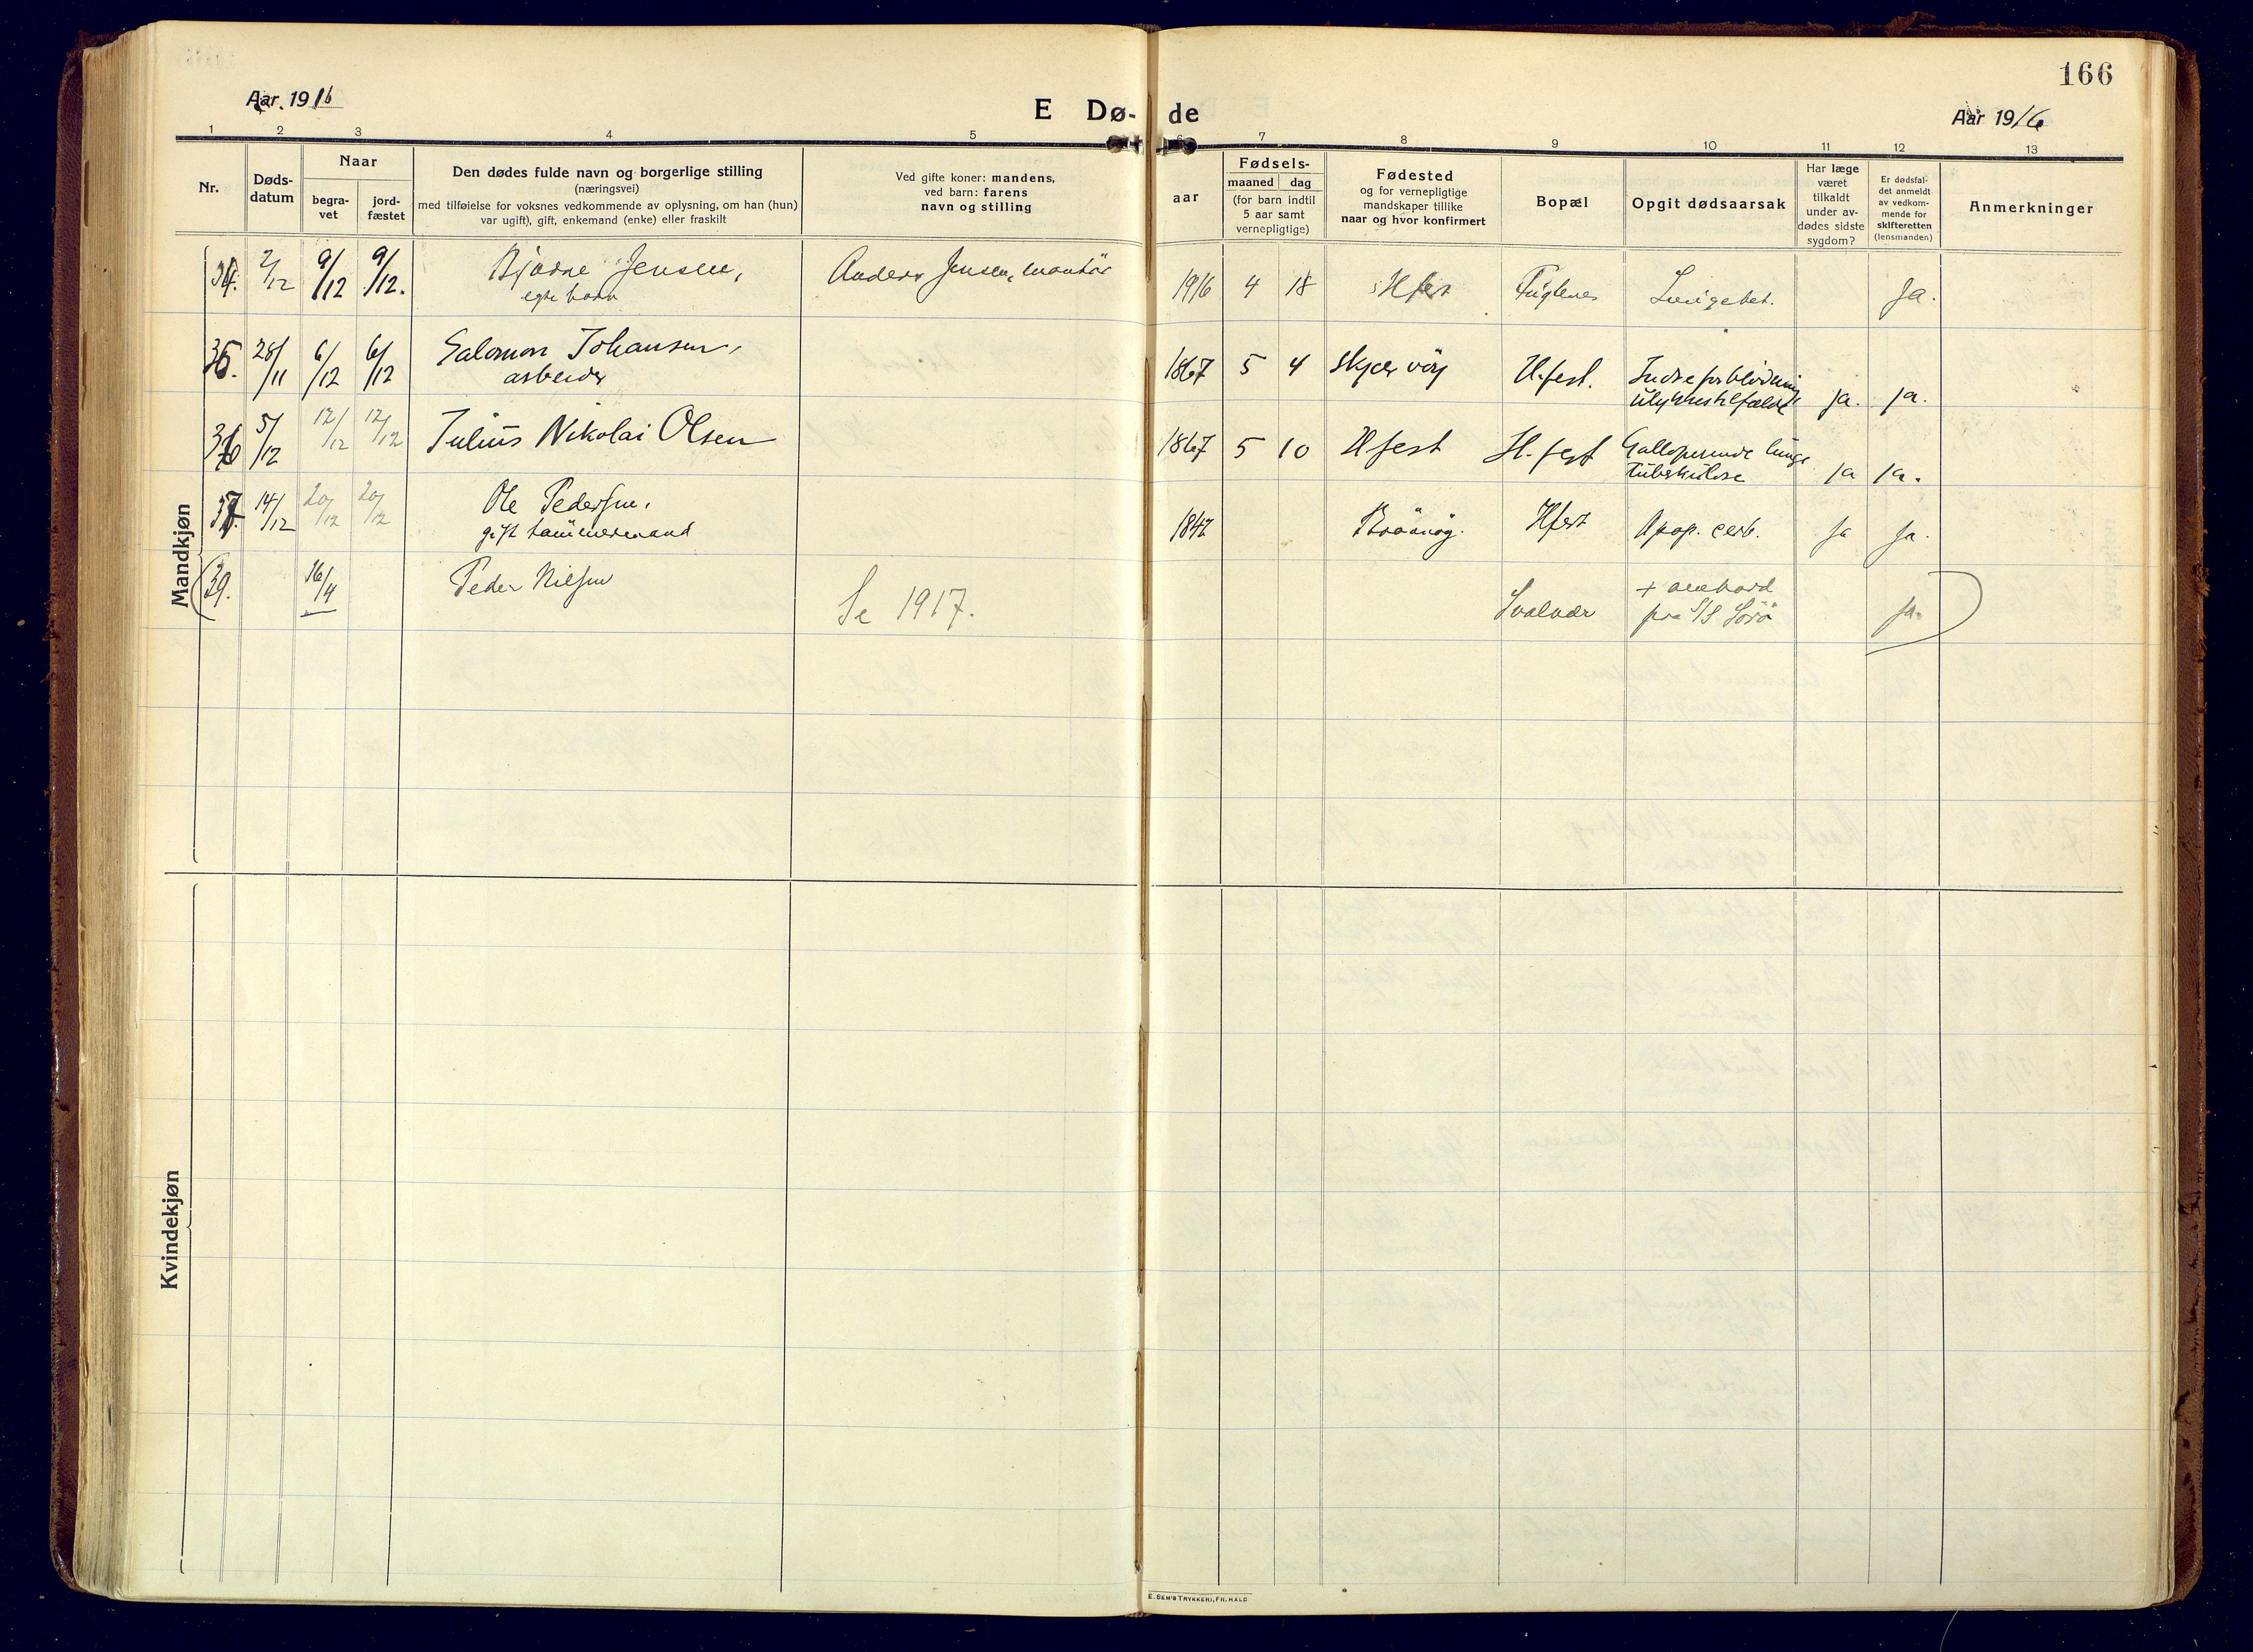 166
Aar 1916
E Dø-de
Aar 1916
1 2 3 4 5 6 7 8 9 10 11 12 13
Nr.
Døds-
datum
Naar
begra-
vet
jord-
fæstet
Den dødes fulde navn og borgerlige stilling
(næringsvei)
med tilføielse for voksnes vedkommende av oplysning, om han (hun)
var ugift), gift, enkemand (enke) eller fraskilt
Ved gifte koner: mandens,
ved barn: farens
navn og stilling
aar
Fødsels-
maaned dag
(for barn indtil
5 aar samt
vernepligtige)
Fødested
og for vernepligtige
mandskaper tillike
naar og hvor konfirmert
Bopæl
Opgit dødsaarsak
Har læge
været
tilkaldt
under av-
dødes sidste
sygdom?
Er dødsfal-
det anmeldt
av vedkom-
mende for
skifteretten
(lensmanden)
Anmerkninger
Mandkjøn
34. 2/12 9/12 9/12. Bjarne Jensen, Anders Jensen, montör 1916 4 18 Hfest Fuglenes Lungebet. Ja.
egte barn
35. 28/11 6/12 6/12 Salomon Johansen, 1867 5 4 Skjervöy H.fest. Indre forblödning ja. ja.
arbeider ulykkestilfælde
36 5/12 12/12 12/12 Julius Nikolai Olsen 1867 5 10 Hfest H.fest Galloperende lunge ja ja.
tuberkulose
37. 14/12 20/12 20/12 Ole Pedersen, 1842 Hfest Apop. cerb. ja ja.
gift tömmermand
39. 16/4 Peder Nilsen Se 1917. Svolvær + ombord ja.
fra S/S Sörö
Kvindekjøn
E. SEM'S TRYKKERI, FR.HALD